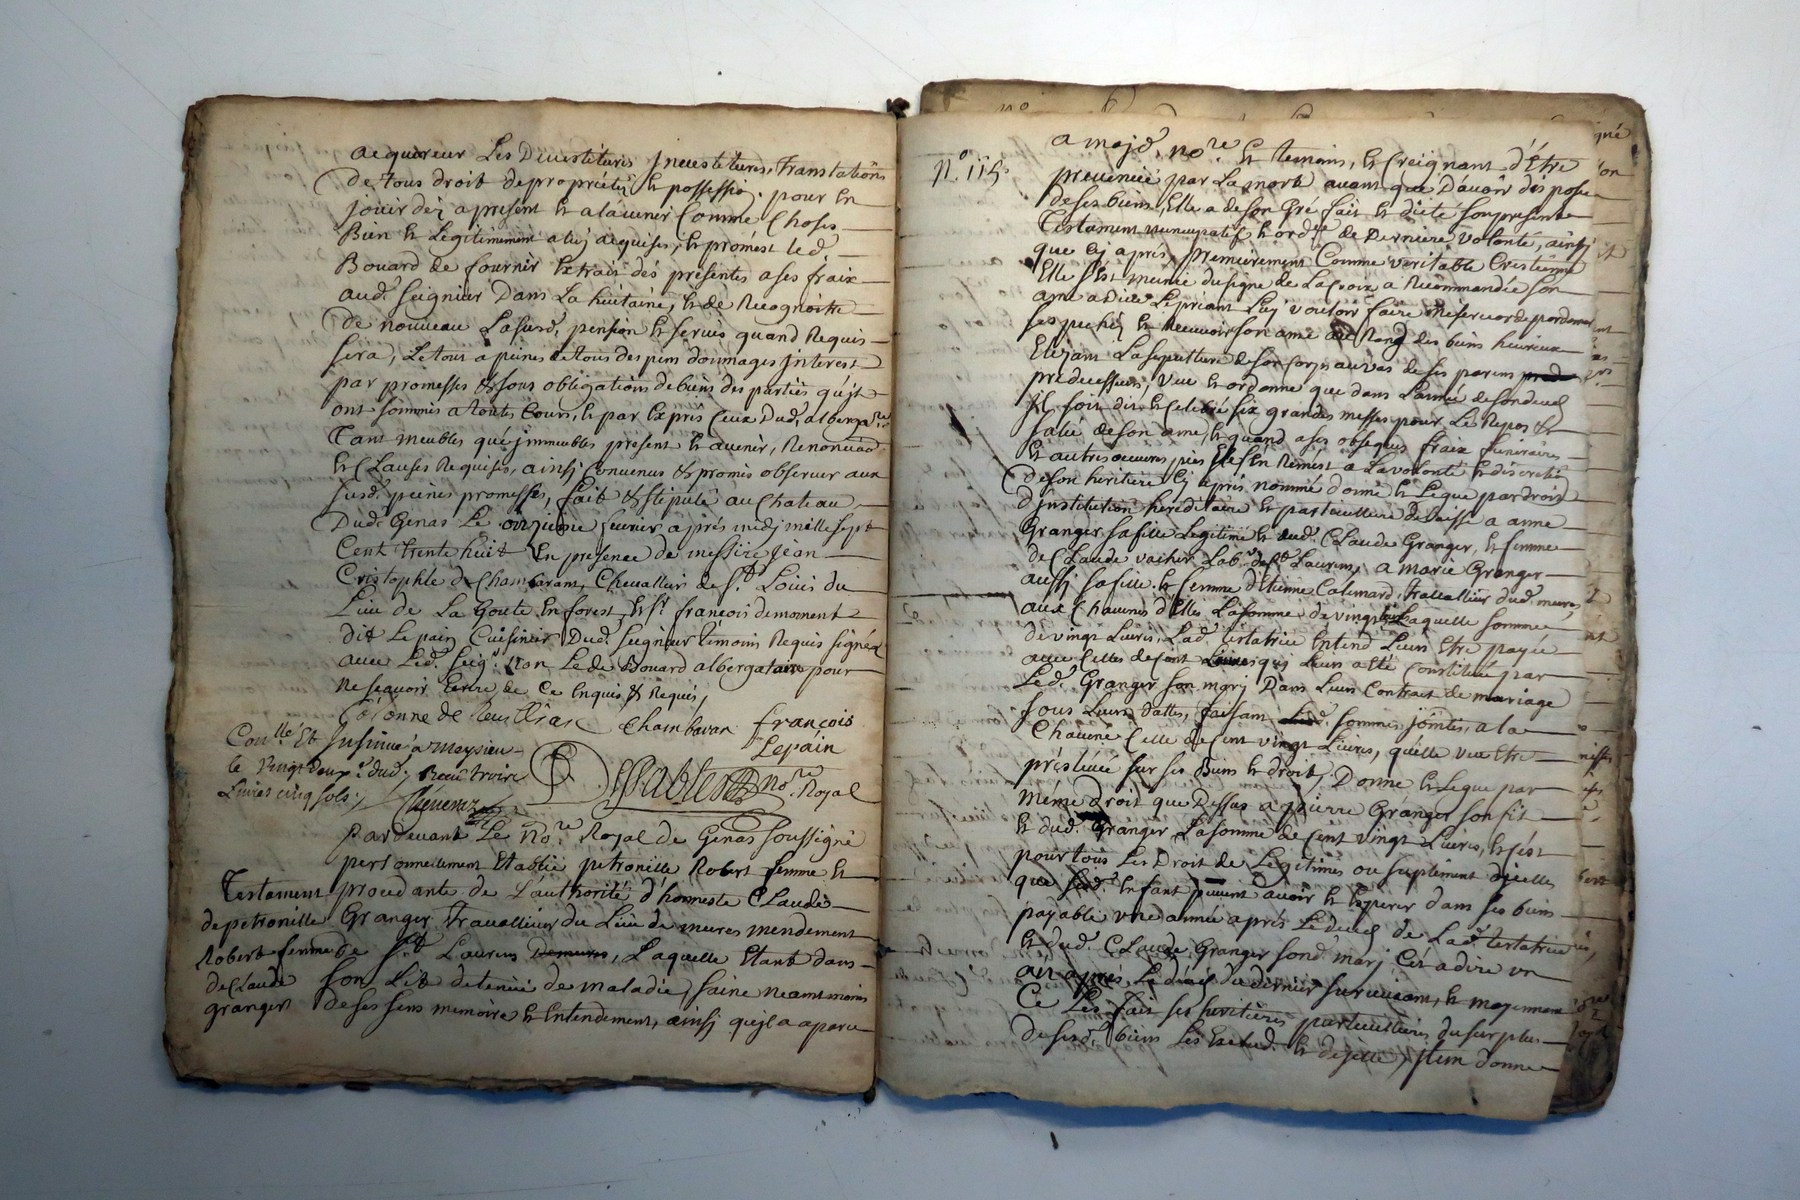 acquereur Les Divestitures Jnvestitures, Translations
De tous droit de propriétés & possession pour En
jouir dez a present & alavenir Comme Choses
Bien & Legitimement a luy acquises, & promest led.
Bouard de fournir Extrait des presentes a ses fraix
aud. Seignieur Dans La huitaine, & de Recognoitre
De nouveau Lasusd. pension & servis quand Requis
sera, Le tout a peines de tous despens dommages Jnterest
par promesses & sous obligations de biens des parties qu'jls
ont soumis a toutes Cours, & par Exprès Ceux Dud. albergataire
Tant meubles que jmmeubles present & avenir, Renonciaõn
& Clauses Requises, ainsj Convenus & promis observer aux
susd. peines promesses, fait & stipulé au Chateau
Dud. Genas Le onzieme fevrier après midj mille sept
Cent trente huit En presence de messire jean
Cristophle de Chambaran, Chevallier de St. Louis du
Lieu de La Goute En forest, & Sr. françois demornent
dit Le pain Cuisinier Dud. Seignieur témoins Requis signéz
avec Led. Seigr. Non Le de Bouard albergataire pour
ne sçavoir Ecrire de Ce Enquis & Requis,
Chambaran françois
Lepain
Conllé Et Jnsinué a Meysieu
le vingt deux dud. Reçu trois
Livres cinq sols
nore. Royal
Pardevant Le Nore. Royal de Genas soussigné
personnellement Etablie petronille Robert femme &
Testament procedante de L'authorité d'honneste Claude
de petronille Granger Travallieur du Lieu de mures mendement
Robert femme de St. Laurens Demures, Laquelle Etant dans
de Claude son Lit detenue de maladie, saine neantmoins
granger de ses sens memoire & Entendement, ainsj qu'jl a aparu
No. 115.
a mojd. nore. & temoins, & Creignant d'Etre
prevenue par La mort avant que D'avoir disposé
de ses biens, Elle a de son Gré fait & dicté son present
Testament nuncupatif & ordre de Derniere volonté, ainsj
que Cy après, premierement Comme veritable Cretienne
Elle s'est munie du signe de La Croix a Recommandée son
ame a Dieu Le priant Luy vouloir faire misericorde pardonner
ses pechés & Recevoir son ame au Rang des biens heureux
Elizant La sepulture de son corps au vas de ses parens
predecesseurs, veut & ordonne que dans L'année de son deces
jl soit dit & Celebré six grandes messes pour Le Repos &
salut de son ame, & quand a ses obseques fraix funeraires
& autres œuvres pies Elle s'En Remest a La volonté & discretion
De son heritiere Cy après nommé donne & Legue par droit
D'jnstitution hereditaire & particulliere delaisse a anne
Granger sa fille Legitime & dud. Claude Granger, & femme
de Claude vacher Labr. de St. Laurens, a Marie Granger
aussj sa fille & femme d'Etienne Calemard, travallieur dud. mures,
aux Chacunes d'Elles La somme de vingt Laquelle somme
de vingt Livres, Lad. testatrice Entend Leurs Etre payée
avec Celles de Cent quj Leurs a Eté Constitué par
Led. Granger son marj Dans Leurs Contrats de mariage
sous Leurs dattes, faisant somme jointes, a la
Chacune Celle de Cent vingt Livres, qu'elle veut Etre
préslevée sur ses Biens & droits, Donne & Legue par
Méme droit que Dessus a pierre Granger son fils
& dud. Granger La somme de Cent vingt Livres, & C'est
pour tous Les Droit de Legitimes ou suplement d'jcelles
que Enfant avoir & Esperer dans ses biens
payable une année après Le deces de Lad. testatrice
& dud. Claude Granger sond. marj C'et a dire un
an après Le deces du dernier survivant, & moyennant
Ce Les fait ses heritiers particulliers du surplus
de sesd. biens Les Exclud. & dejette, Jtem donne